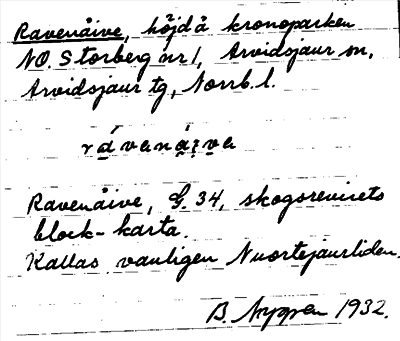 Ravenåive, höjd å kronoparken
NO. Storberg nr 1, Arvidsjaur sn,
Arvidsjaur tg, Norrb. l.
rávanái̯va
Ravenåive, G. 34, skogsrevirets
block-karta.
Kallas vanligen Nuortejaurliden.
B. Nygren 1932.